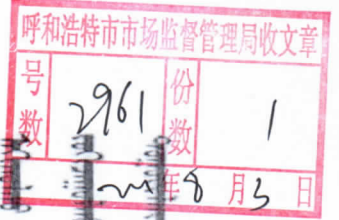 呼和浩特市市场监督管理局收文章
号数 2961 份数 1
年8月3日